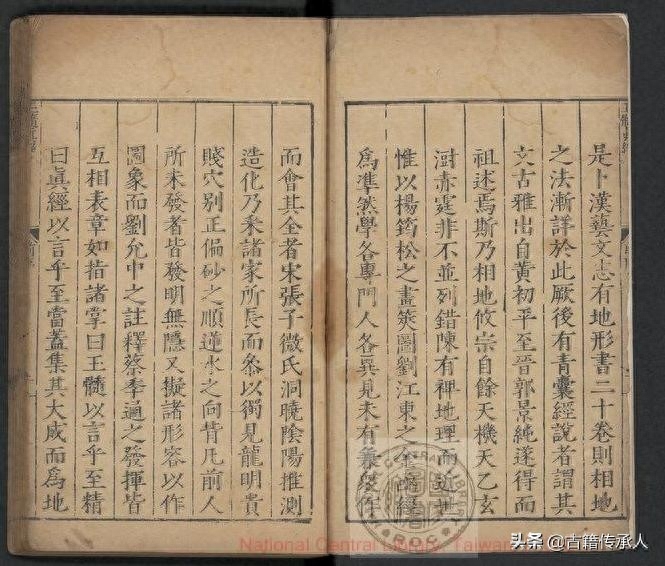 是卜漢藝文志有地形書二十卷則相地
之法漸詳於此厥後有青囊經說者謂其
文古雅出自黃初平至晉郭景純遂得而
祖述焉斯乃相地攸宗自餘天機天乙玄
女赤霆非不並列錯陳有裨地理而近世
惟以楊筠松之畫筴圖劉江東之
為準然學各專門人各異見未有兼綜作
而會其全者宋張子微氏洞曉陰陽推測
造化乃秉諸家所長而參以獨見龍明貴
賤穴別正偏砂之順逆水之向背凡前人
所未發者皆發明無隱又擬諸形容以作
圖象而劉允中之註釋蔡季通之發揮皆
互相表章如指諸掌曰玉髓以言乎至精
曰真經以言乎至當蓋集其大成而為地
National Central Library, Taiwan
頭条 @古籍传承人